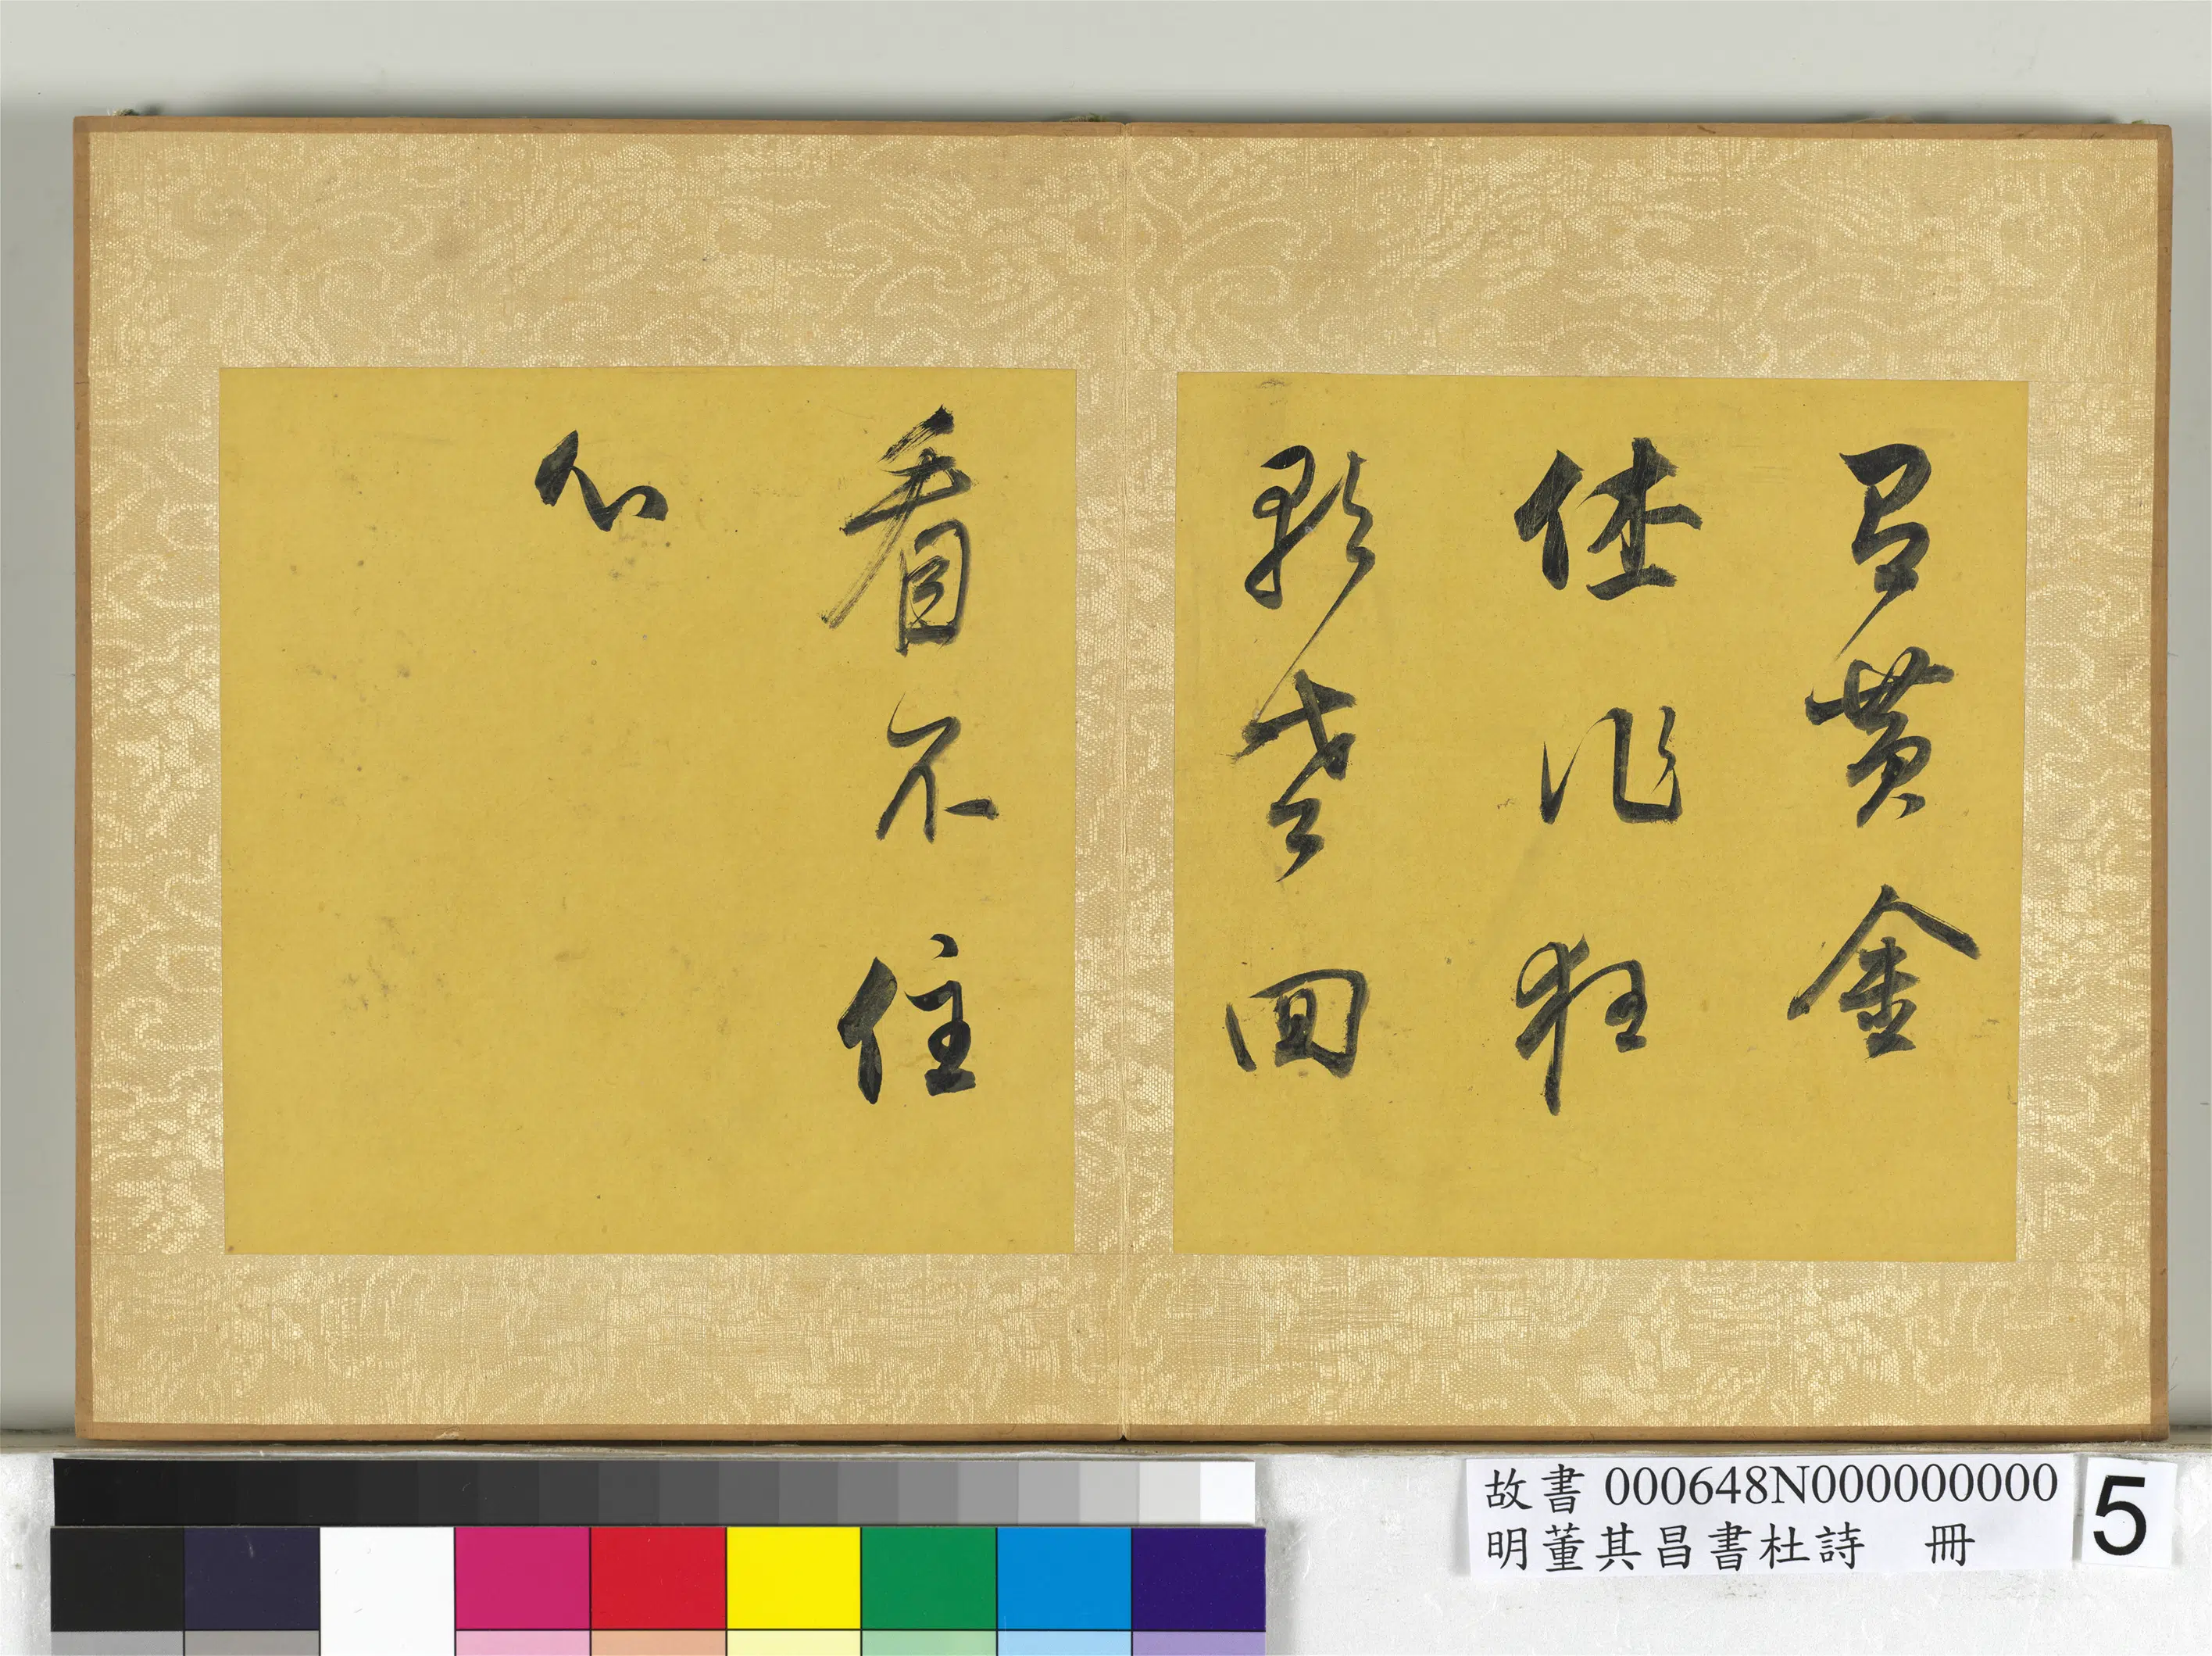 有黃金
休作狂
歌老回
看不住
心
故書 000648N000000000
明董其昌書杜詩 冊
5